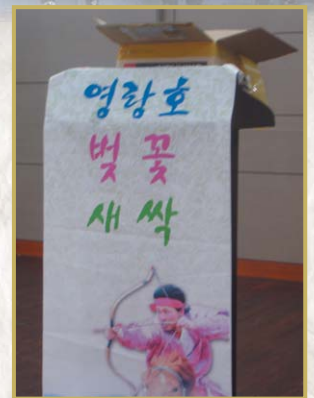 영랑호
벚꽃
새싹